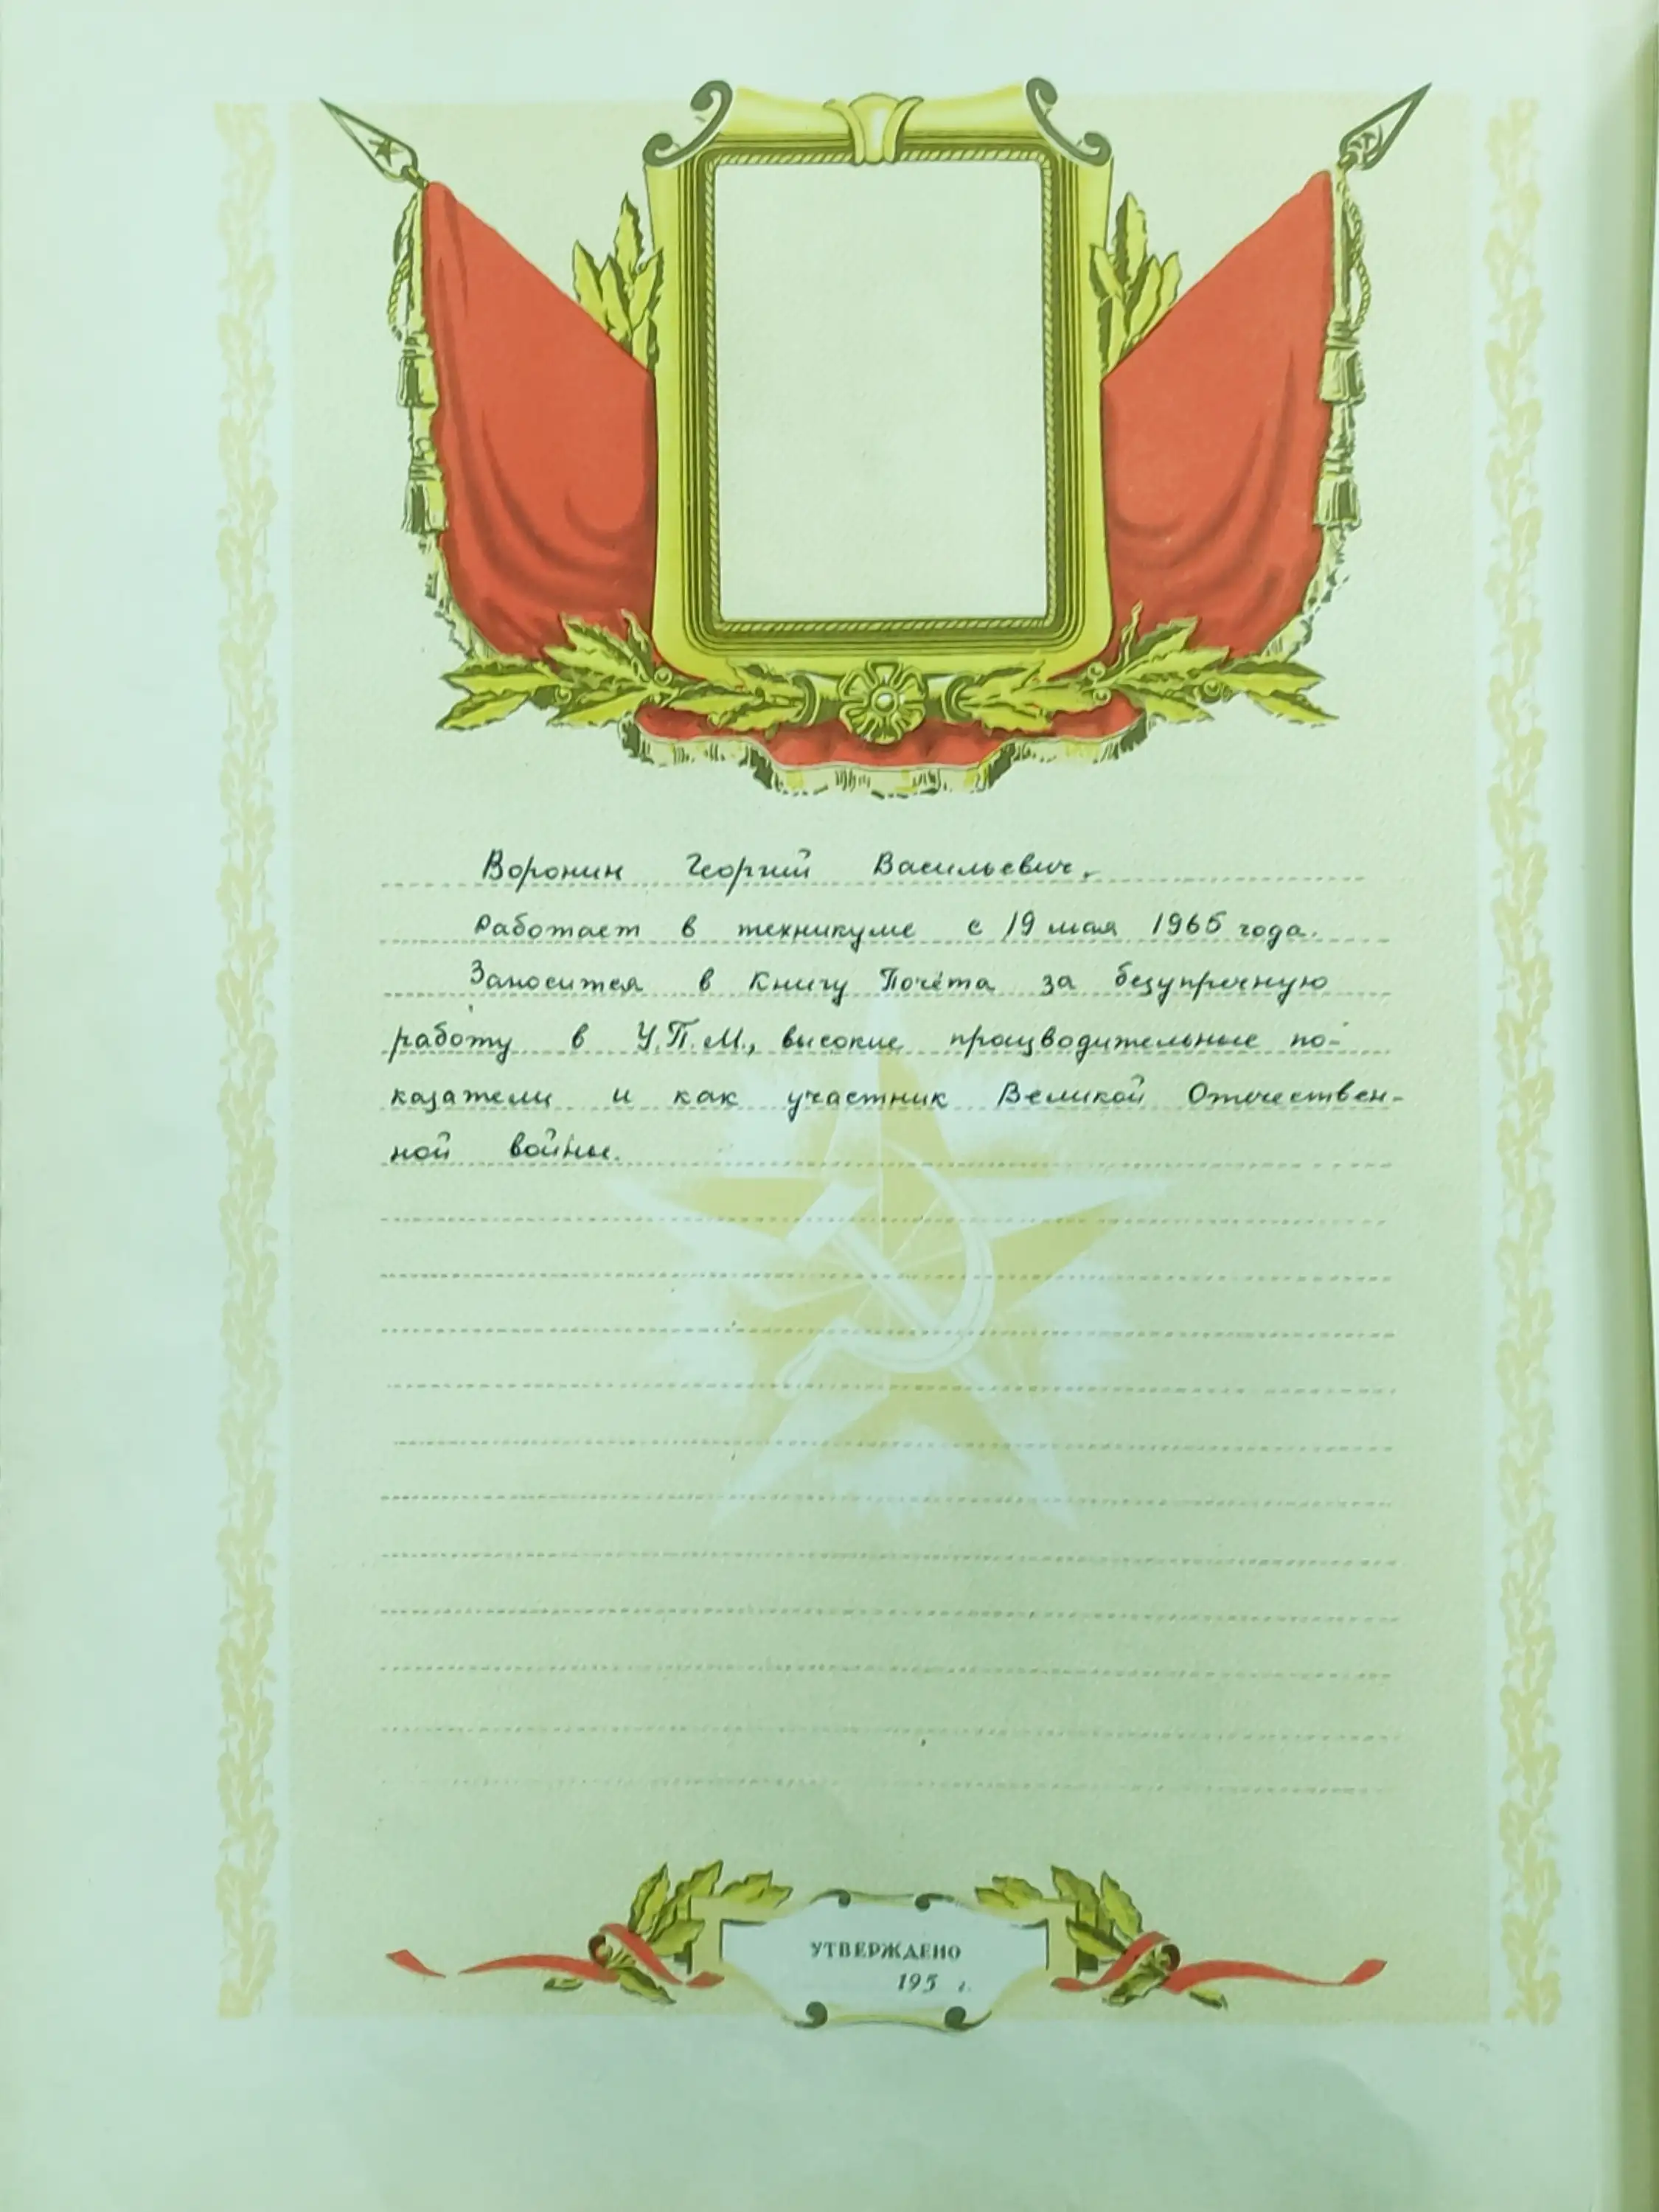 Воронин Георгий Васильевич.
Работает в техникуме с 19 мая 1965 года.
Заносится в Книгу Почёта за безупречную
работу в У.П.М., высокие производительные по-
казатели и как участник Великой Отечествен-
ной войны.
УТВЕРЖДЕНО
195 г.